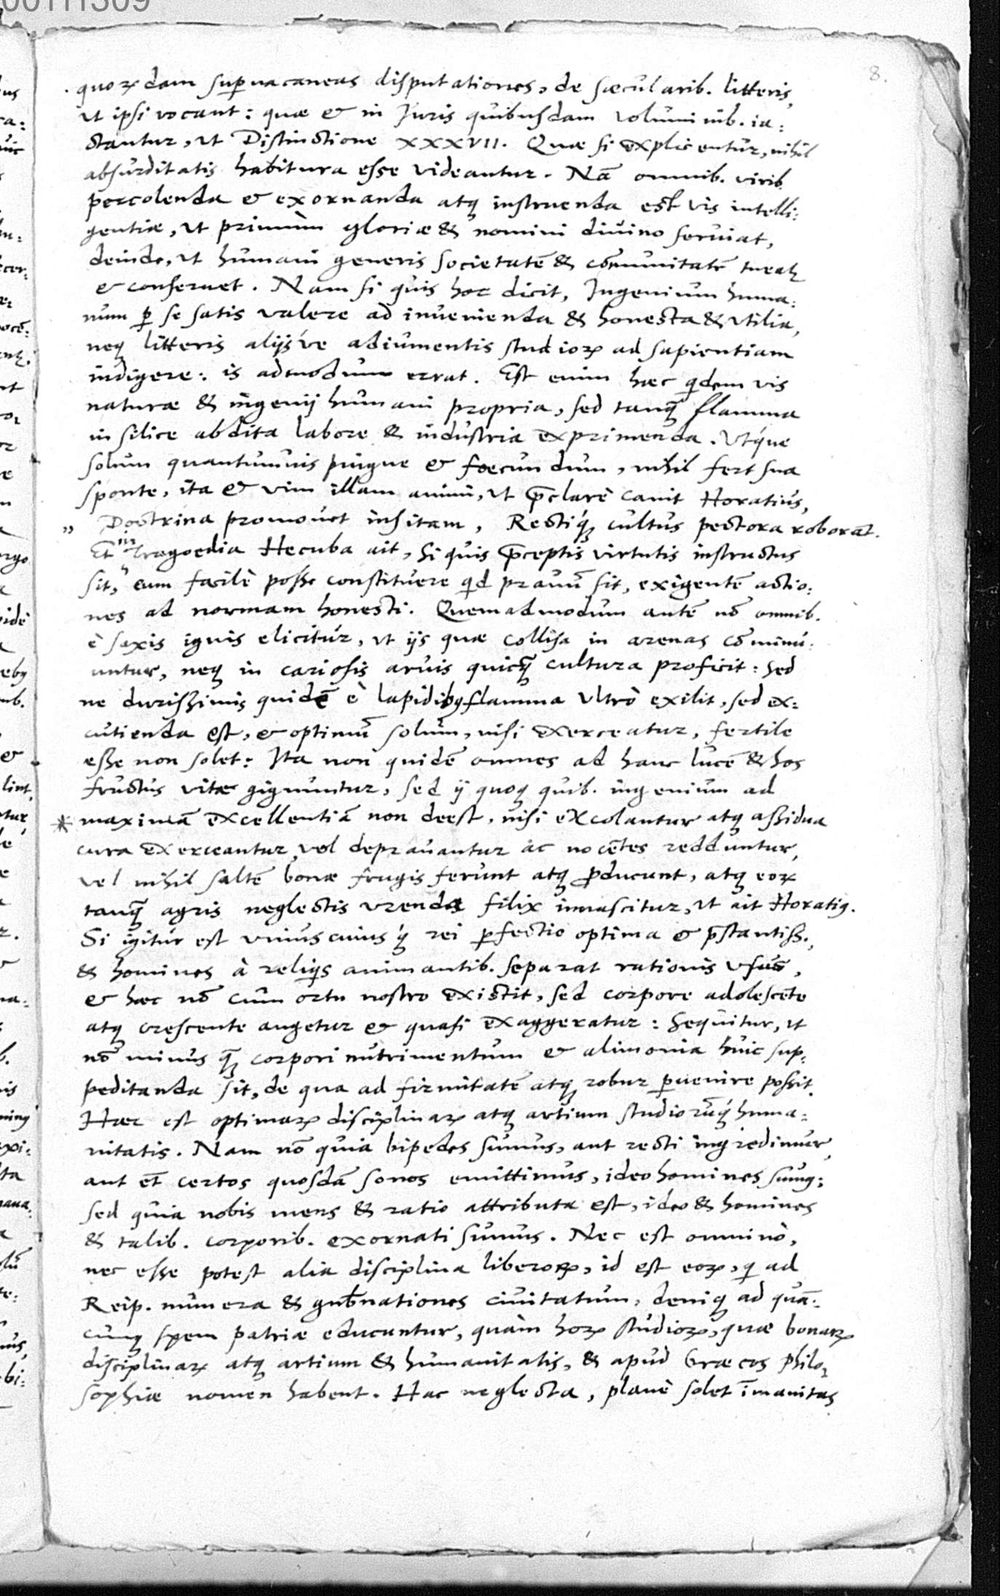 00111309
8.
quorꝝdam supvacaneas disputationes, de sæcularib. litteris,
ut ipsi vocant: quæ & in Juris quibusdam voluminib. ia:
ctantur, ut Distinctione XXXVII. Quæ si explicentur, nihil
absurditatis habitura esse videantur. Nã omnib. virib.
percolenda & exornanda atq₃ instruenda est vis intelli:
gentiæ, ut primùm gloriæ & nomini divino serviat,
deinde, ut humani generis societatẽ & cõmunitatẽ tueatꝛ
& conservet. Nam si quis hoc dicit, Ingenium huma:
num ꝑ se satis valere ad invenienda & honesta & utilia,
neq₃ litteris alijsve adiumentis studioꝝ ad sapientiam
indigere: is admodum errat. Est enim hæc qͥdem vis
naturæ & ingenij humani propria, sed tanq̃ flamma
in silice abdita labore & industria exprimenda. Utq́ue
solum quantumvis pingue & foecundum, nihil fert sua
sponte, ita & vim illam animi, ut p̃clarè canit Horatius,
" Doctrina promovet insitam, Rectiq́₃ cultus pectora roborãt.
Et in Tragoedia Hecuba ait, si quis p̃ceptis virtutis instructus
sit, eum facilè posse constituere qͥd pravũ sit, exigentẽ actio:
nes ad normam honesti. Quemadmodum autẽ nõ omnib.
è saxis ignis elicitur, ut ijs quæ collisa in arenas cõminu:
untur, neq₃ in cariosis arvis quicq̃ cultura proficit: sed
ne durissimis quidẽ è lapidibꝯ flamma ultrò exilit, sed ex:
cutienda est, & optimũ solum, nisi exerceatur, fertile
esse non solet: Ita non quidẽ omnes ad hanc lucẽ & hos
fructus vitæ gignuntur, sed ij quoq₃ quib. ingenium ad
* maximã excellentiã non deest, nisi excolantur atq₃ assidua
cura exerceantur, vel depravantur ac nocẽtes redduntur,
vel nihil saltẽ bonæ frugis ferunt atq₃ ꝓducunt, atq₃ eoꝝ
tanq̃ agris neglectis urenda filix innascitur, ut ait Horatiꝯ.
Si igitur est uniuscuiusq́₃ rei ꝑfectio optima & p̃stantiss.,
& homines à reliqͥs animantib. separat rationis usus,
& hæc nõ cum ortu nostro existit, sed corpore adolescẽte
atq₃ crescente augetur & quasi exaggeratur: Sequitur, ut
nõ minus q̃ corpori nutrimentum & alimonia huic sup:
peditanda sit, de qua ad firmitatẽ atq₃ robur ꝑvenire possit.
Hæc est optimaꝝ disciplinaꝝ atq₃ artium studiorũq́₃ huma:
nitatis. Nam nõ quia bipedes sumus, aut recti ingredimur,
aut et̃ certos quosdã sonos emittimus, ideo homines sumꝯ:
sed quia nobis mens & ratio attributa est, ideo & homines
& talib. corporib. exornati sumus. Nec est omnino,
nec esse potest alia disciplina liberoꝝ, id est eoꝝ, qͥ ad
Reip. munera & gub̃nationes civitatum, deniq₃ ad quã:
cunq₃ spem patriæ educuntur, quàm hoꝝ studioꝝ, quæ bonaꝝ
disciplinaꝝ atq₃ artium & humanitatis, & apud Græcos philo:
sophiæ nomen habent. Hac neglecta, planè solet ĩmanitas